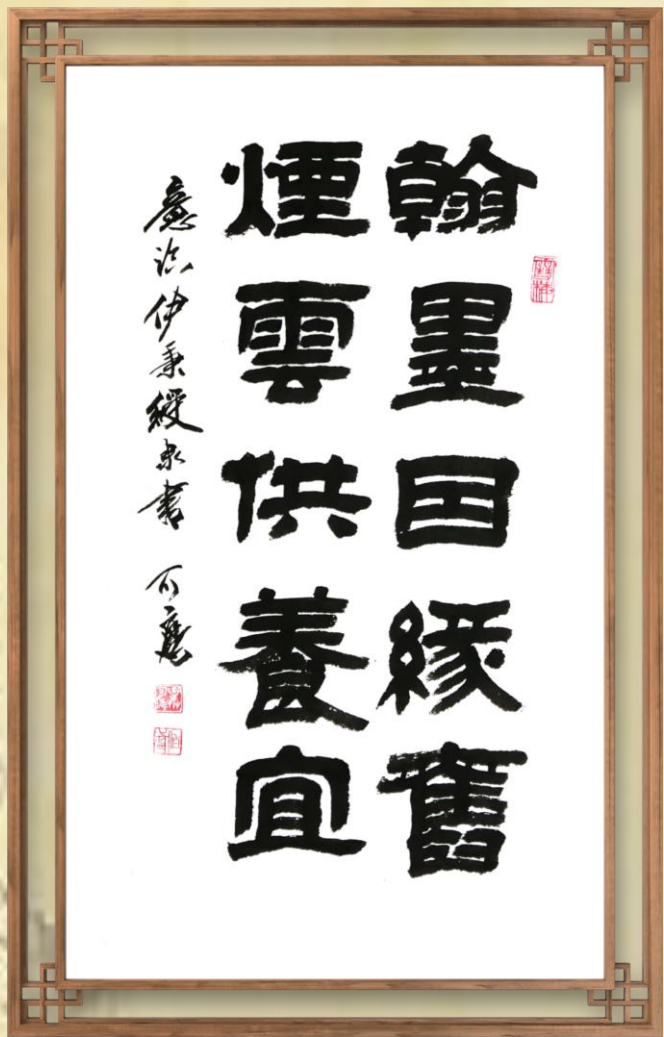 翰墨因緣舊
煙雲供養宜
意臨伊秉綬隸書 可應